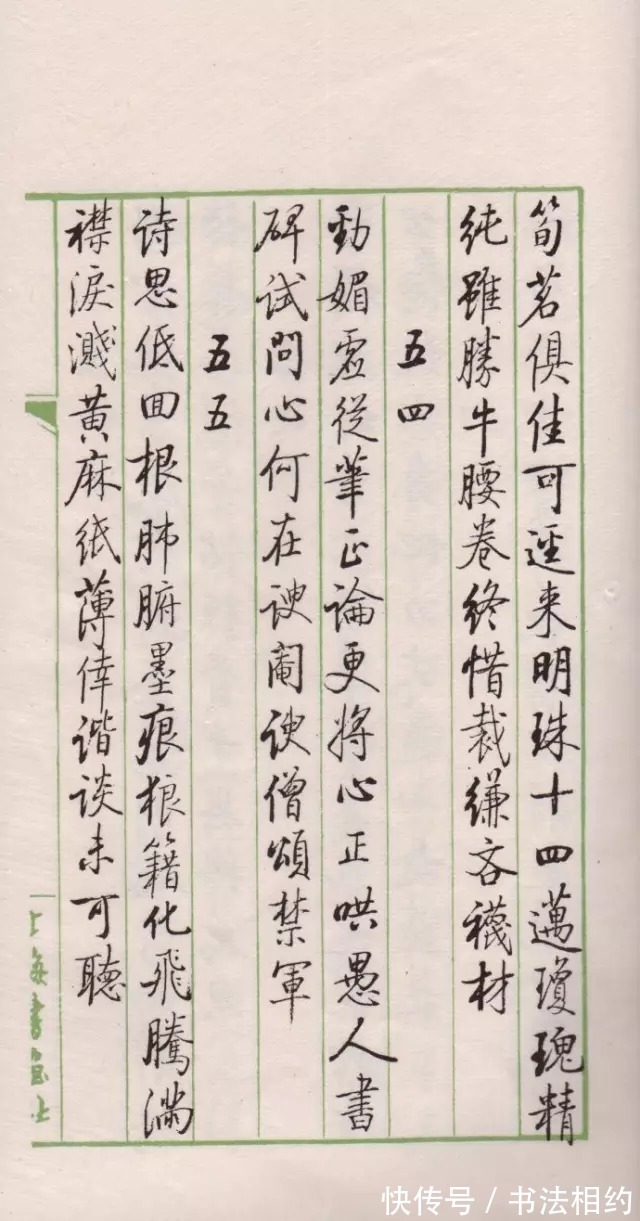 筍茗俱佳可逕来明珠十四邁瓊瑰精
纯雖勝牛腰卷终惜裁縑吝襪材
五四
勁媚虚從筆正論更將心正哄愚人書
碑试問心何在谀阉谀僧頌禁軍
五五
诗思低回根肺腑墨痕狼籍化飛騰滿
襟淚濺黄麻纸薄倖谐谈未可聽
上海書畫社
快传号／书法相约